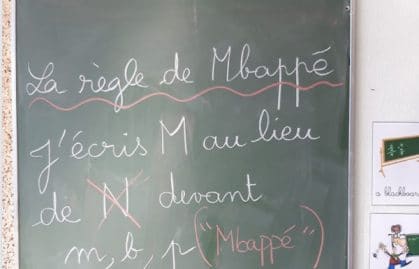 La règle de Mbappé
J'écris M au lieu
de N devant
m, b, p ("Mbappé")
a blackboar